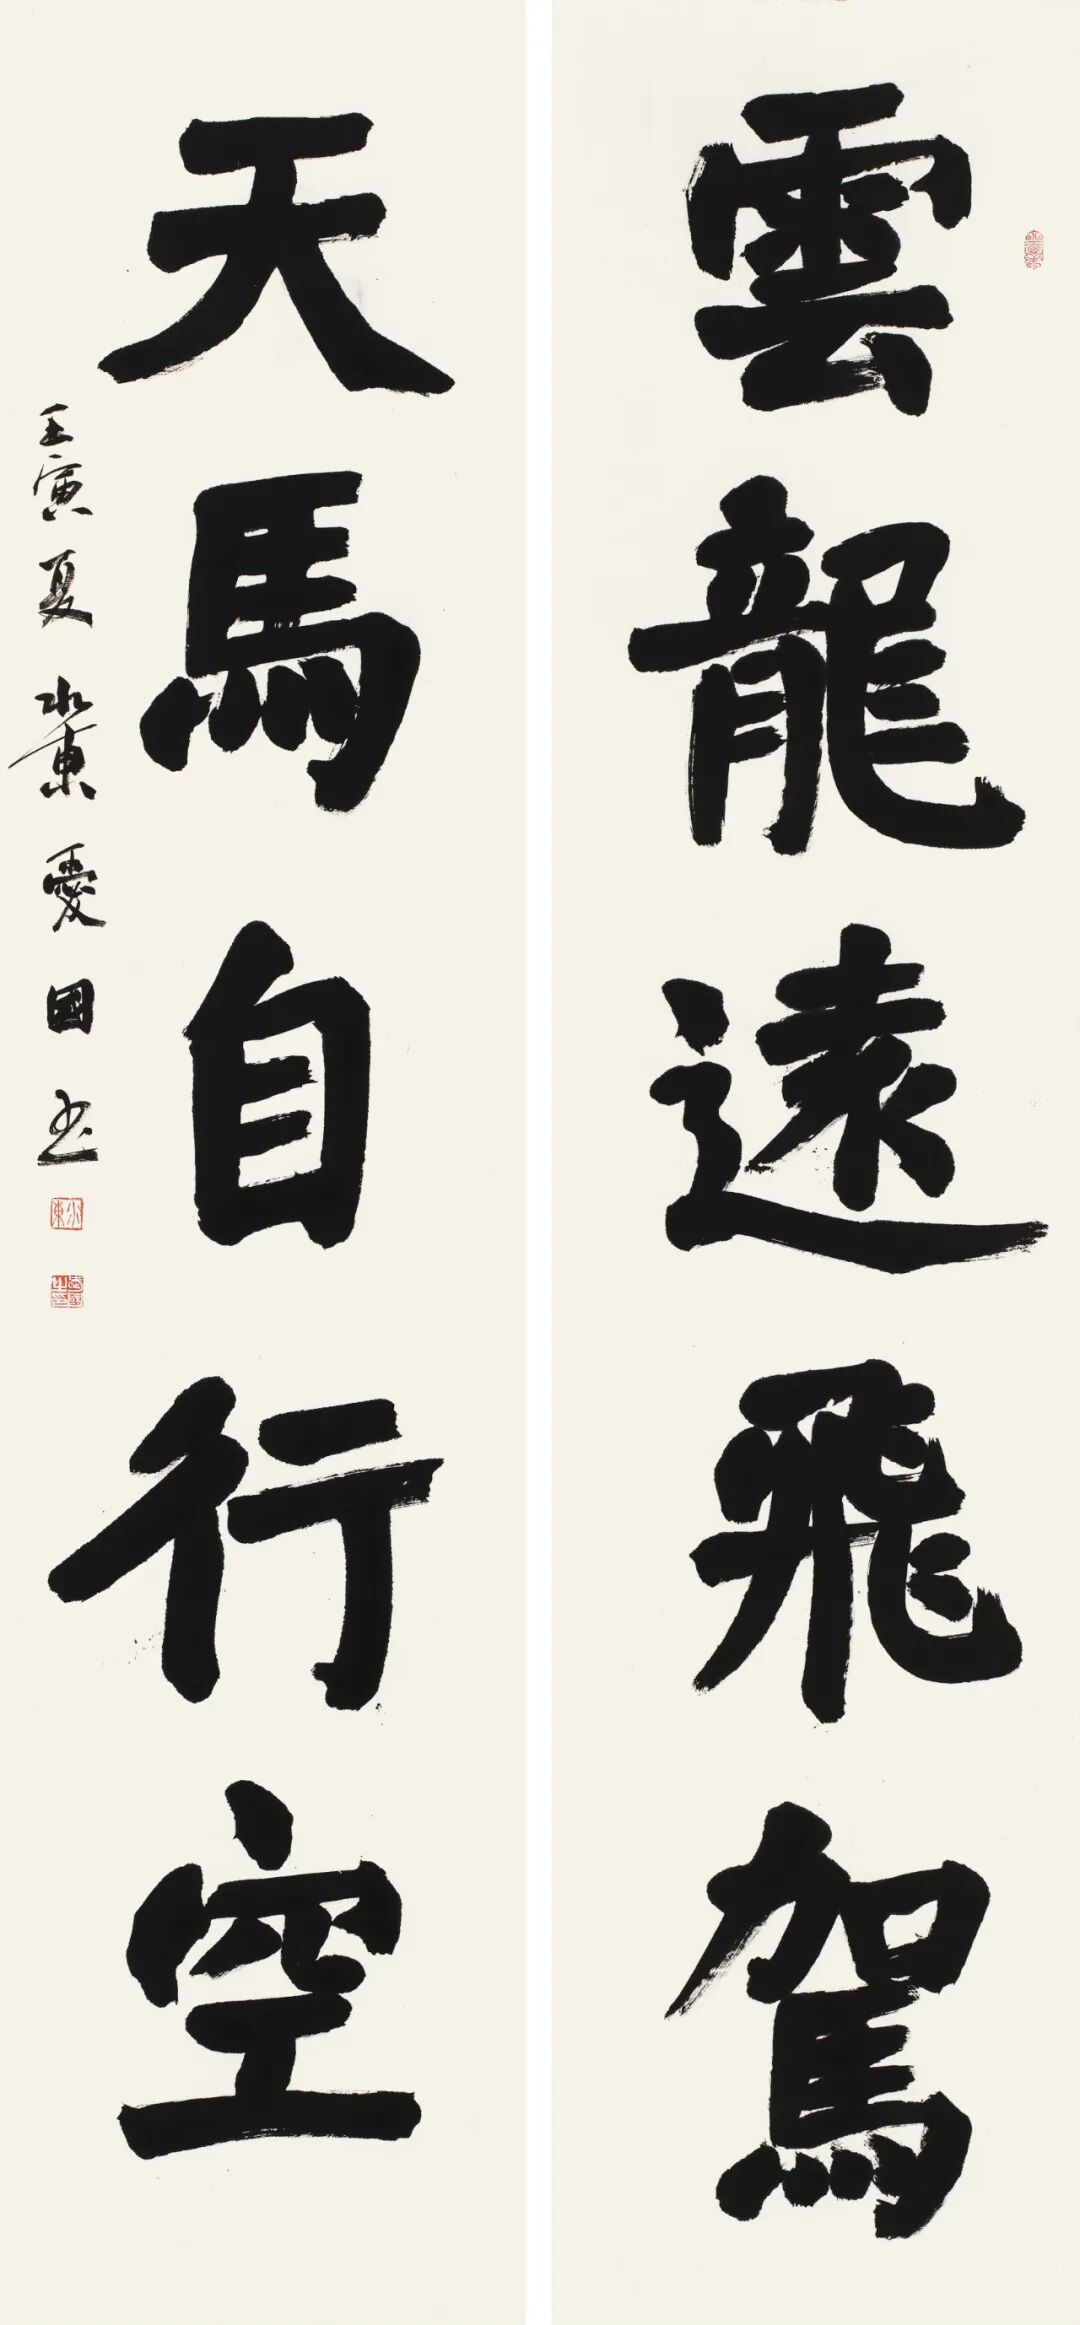 雲龍遠飛駕
天馬自行空
壬寅夏水東愛國书